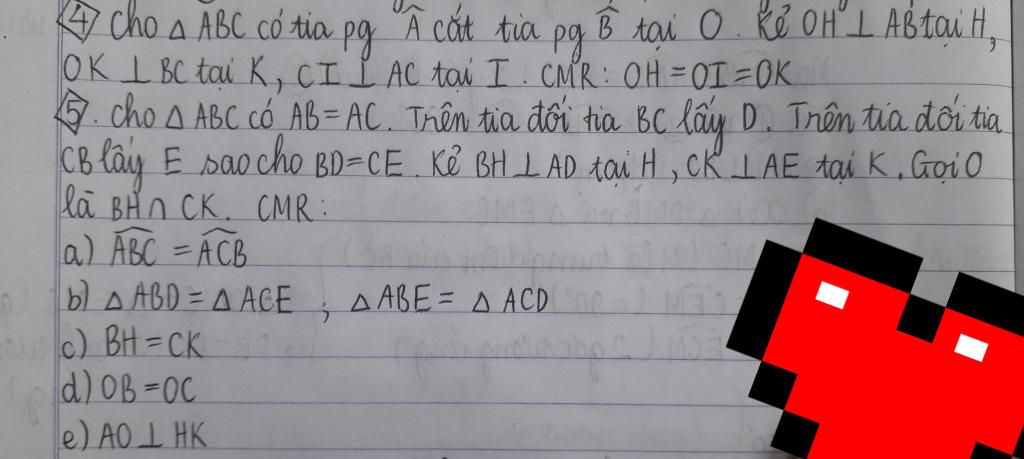 4 Cho △ ABC có tia pg Â cắt tia pg B̂ tại O. Kẻ OH ⊥ AB tại H,
OK ⊥ BC tại K, CI ⊥ AC tại I. CMR: OH = OI = OK
5. Cho △ ABC có AB = AC. Trên tia đối tia BC lấy D. Trên tia đối tia
CB lấy E sao cho BD = CE. Kẻ BH ⊥ AD tại H, CK ⊥ AE tại K. Gọi O
là BH ∩ CK. CMR:
a) ABC = ACB
b) △ ABD = △ ACE ; △ ABE = △ ACD
c) BH = CK
d) OB = OC
e) AO ⊥ HK